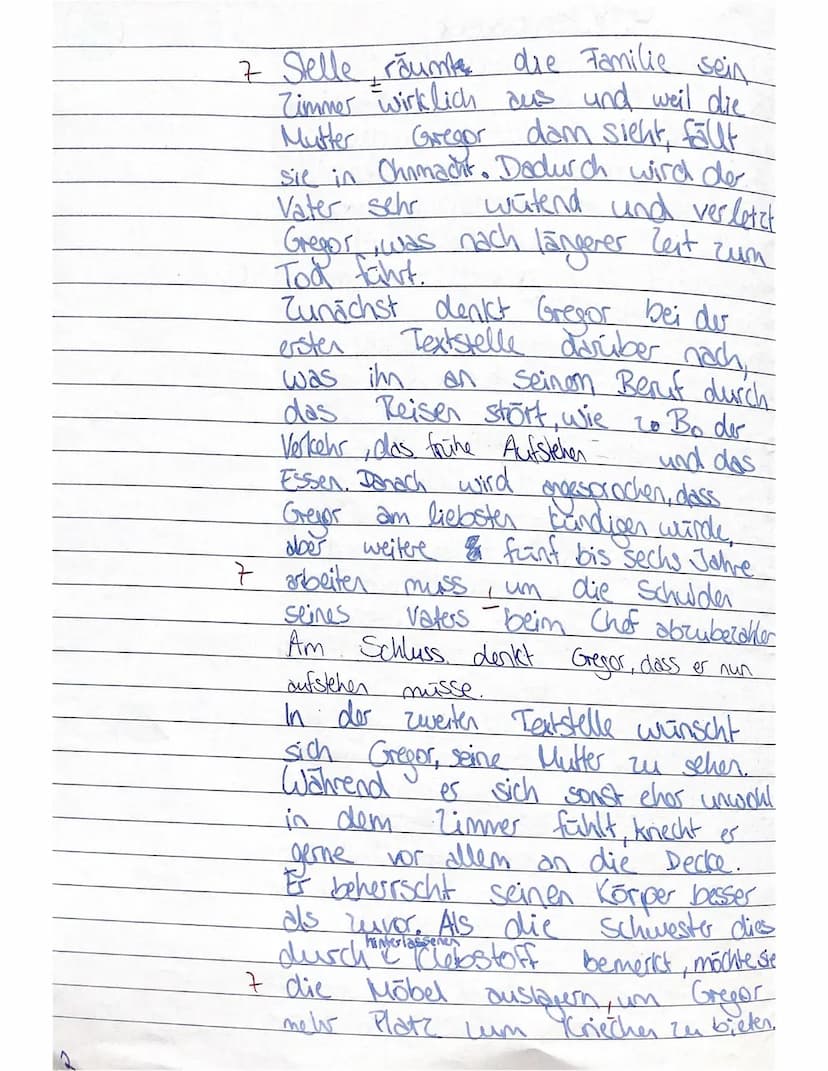 7 Stelle, räumte die Familie sein
Zimmer wirklich aus und weil die
Mutter Gregor dann sieht, fällt
sie in Ohnmacht. Dadurch wird der
Vater sehr wütend und verletzt
Gregor, was nach längerer Zeit zum
Tod führt.
Zunächst denkt Gregor bei der
ersten Textstelle darüber nach,
was ihn an seinem Beruf durch
das Reisen stört, wie z. B. der
Verkehr, das frühe Aufstehen und das
Essen. Danach wird angesprochen, dass
Gregor am liebsten kündigen würde,
aber weitere fünf bis sechs Jahre
7 arbeiten muss, um die Schulden
seines Vaters beim Chef abzubezahlen
Am Schluss denkt Gregor, dass er nun
aufstehen müsse.
In der zweiten Textstelle wünscht
sich Gregor, seine Mutter zu sehen.
Während er sich sonst eher unwohl
in dem Zimmer fühlt, kriecht er
gerne vor allem an die Decke.
Er beherrscht seinen Körper besser
als zuvor. Als die Schwester dies
durch hinterlassenen Klebstoff bemerkt, möchte sie
7 die Möbel auslagern, um Gregor
mehr Platz zum Kriechen zu bieten.
2